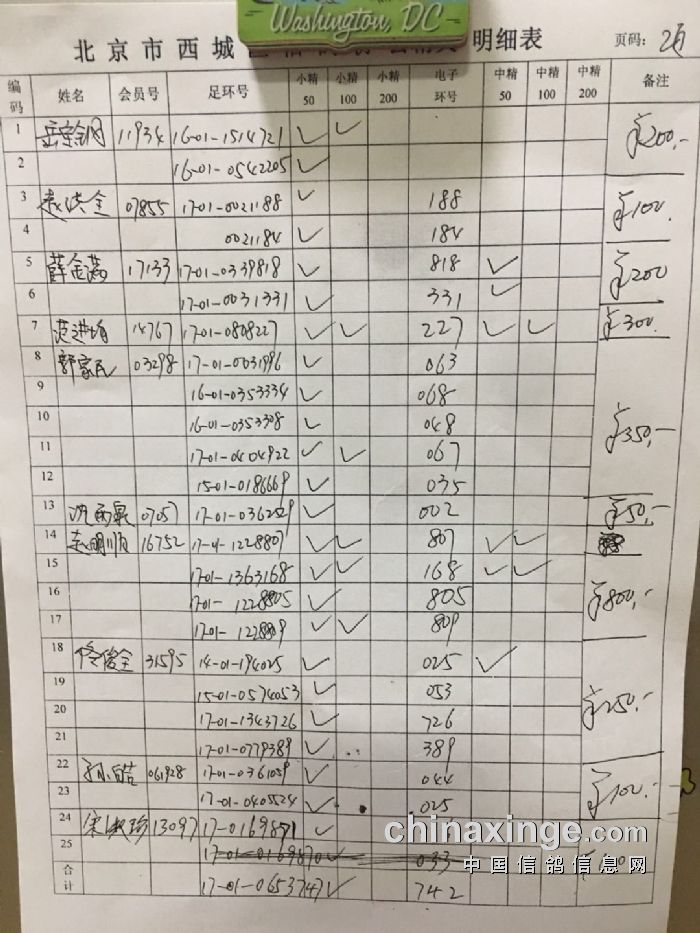 Washington, DC
北京市西城区 明细表 页码：2页
编码 姓名 会员号 足环号 小精50 小精100 小精200 电子环号 中精50 中精100 中精200 备注
1 11934 16-01-1514721 ✓ ✓ ¥200.-
2 16-01-0542205 ✓
3 袁洪全 07855 17-01-0021188 ✓ 188 ¥100.
4 0021184 ✓ 184
5 薛金燕 17133 17-01-0339818 ✓ 818 ✓ ¥200
6 17-01-0031331 ✓ 331 ✓
7 14767 17-01-0808227 ✓ ✓ 227 ✓ ✓ ¥300.
8 郭家民 03298 17-01-0031996 ✓ 063
9 16-01-0353334 ✓ 068
10 16-01-0353308 ✓ 048 ¥350.-
11 17-01-0404922 ✓ ✓ 067
12 15-01-0186669 ✓ 035
13 17-01-0362529 ✓ 002 ¥50.-
14 赵明顺 16752 17-01-1228807 ✓ ✓ 807 ✓ ✓
15 17-01-1363168 ✓ ✓ 168 ✓ ✓
16 17-01-1228805 ✓ 805 ¥800.-
17 17-01-1228809 ✓ ✓ 809
18 佟俊全 31595 14-01-194025 ✓ 025 ✓
19 15-01-0574053 ✓ 053
20 17-01-1343726 ✓ 726 ¥250.-
21 17-01-0779389 ✓ 389
22 061928 17-01-0361059 ✓ 044
23 17-01-0405524 ✓ 025 ¥100.-
24 宋淑珍 13097 17-0169871 ✓
25 17-01-0169870 ✓ 033
合计 17-01-0653747 ✓ 742
chinaxinge.com
中国信鸽信息网